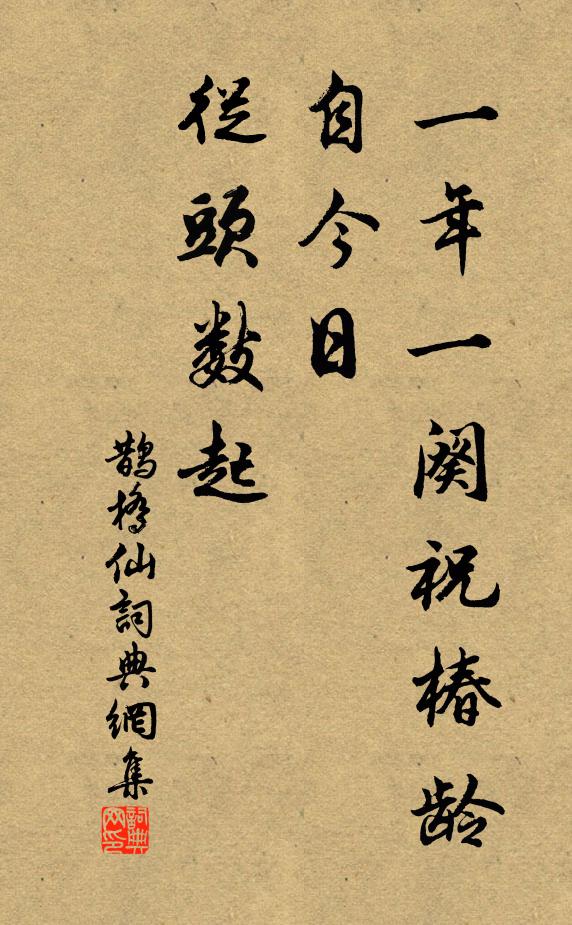 一年一阕祝椿龄
自今日
從頭数起
鵲橋仙詞典網集
詞典网印